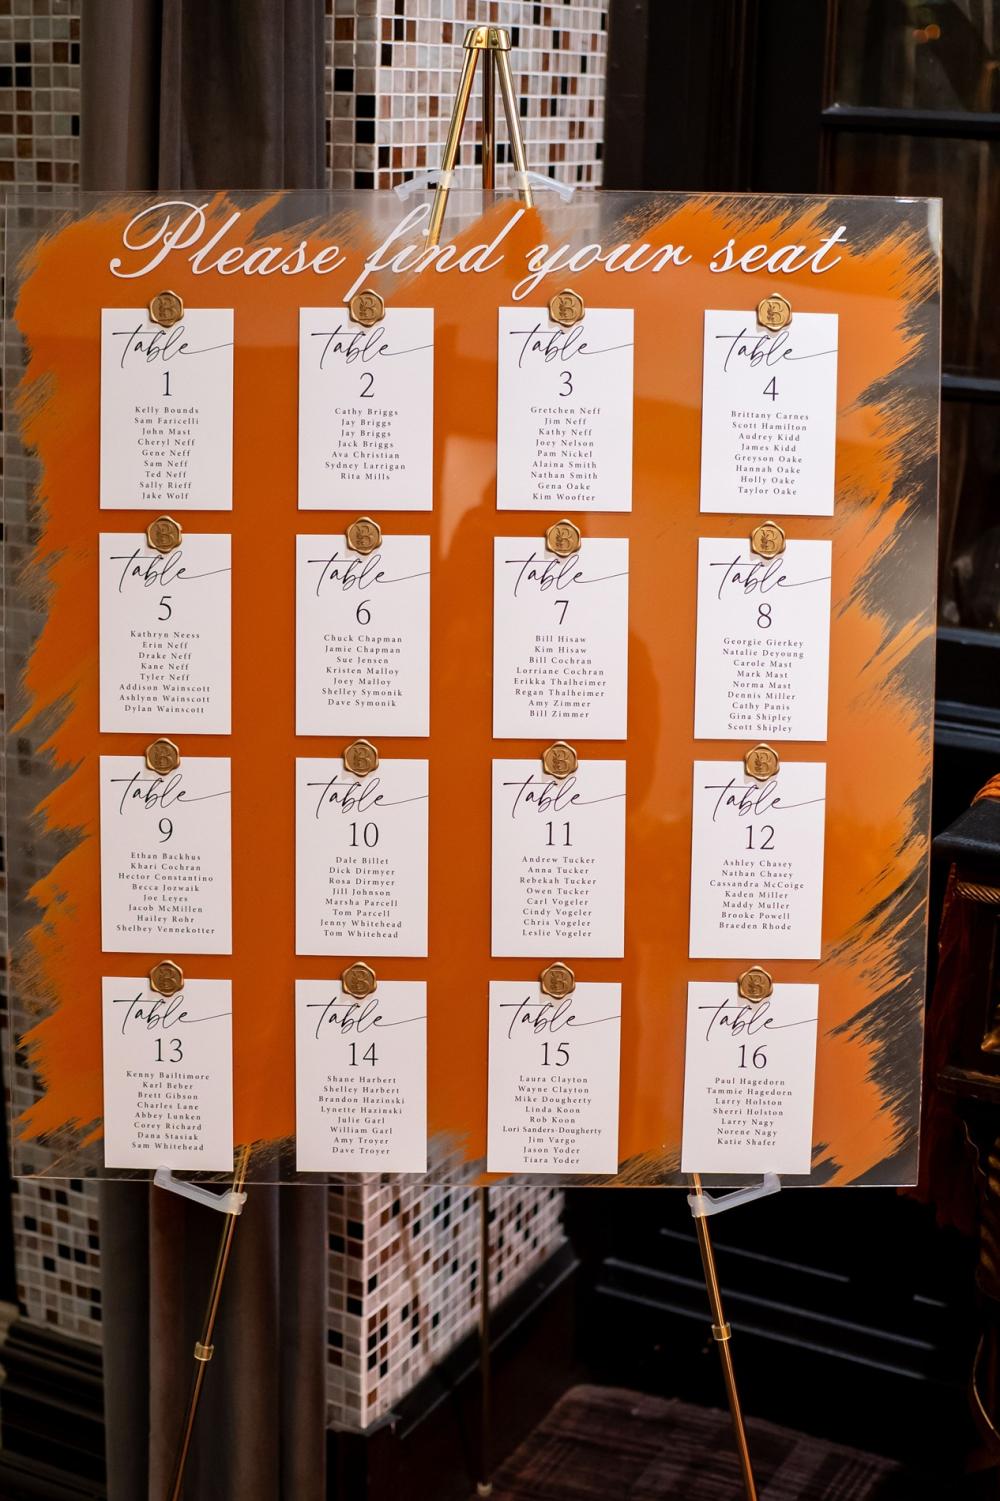 Please find your seat
Table
1
Kelly Bounds
Sam Faricelli
John Mast
Cheryl Neff
Gene Neff
Sam Neff
Ted Neff
Sally Rieff
Jake Wolf
Table
2
Cathy Briggs
Jay Briggs
Jay Briggs
Jack Briggs
Ava Christian
Sydney Larrigan
Rita Mills
Table
3
Gretchen Neff
Jim Neff
Kathy Neff
Joey Nelson
Pam Nickel
Alaina Smith
Nathan Smith
Gena Oake
Kim Woofter
Table
4
Brittany Carnes
Scott Hamilton
Audrey Kidd
James Kidd
Greyson Oake
Hannah Oake
Holly Oake
Taylor Oake
Table
5
Kathryn Neess
Erin Neff
Drake Neff
Kane Neff
Tyler Neff
Addison Wainscott
Ashlynn Wainscott
Dylan Wainscott
Table
6
Chuck Chapman
Jamie Chapman
Sue Jensen
Kristen Malloy
Joey Malloy
Shelley Symonik
Dave Symonik
Table
7
Bill Hisaw
Kim Hisaw
Bill Cochran
Lorriane Cochran
Erikka Thalheimer
Regan Thalheimer
Amy Zimmer
Bill Zimmer
Table
8
Georgie Gierkey
Natalie Deyoung
Carole Mast
Mark Mast
Norma Mast
Dennis Miller
Cathy Panis
Gina Shipley
Scott Shipley
Table
9
Ethan Backhus
Khari Cochran
Hector Constantino
Becca Jozwaik
Joe Leyes
Jacob McMillen
Hailey Rohr
Shelbey Vennekotter
Table
10
Dale Billet
Dick Dirmyer
Rosa Dirmyer
Jill Johnson
Marsha Parcell
Tom Parcell
Jenny Whitehead
Tom Whitehead
Table
11
Andrew Tucker
Anna Tucker
Rebekah Tucker
Owen Tucker
Carl Vogeler
Cindy Vogeler
Chris Vogeler
Leslie Vogeler
Table
12
Ashley Chasey
Nathan Chasey
Cassandra McCoige
Kaden Miller
Maddy Muller
Brooke Powell
Braeden Rhode
Table
13
Kenny Bailtimore
Karl Beber
Brett Gibson
Charles Lane
Abbey Lunken
Corey Richard
Dana Stasiak
Sam Whitehead
Table
14
Shane Harbert
Shelley Harbert
Brandon Hazinski
Lynette Hazinski
Julie Garl
William Garl
Amy Troyer
Dave Troyer
Table
15
Laura Clayton
Wayne Clayton
Mike Dougherty
Linda Koon
Rob Koon
Lori Sanders-Dougherty
Jim Vargo
Jason Yoder
Tiara Yoder
Table
16
Paul Hagedorn
Tammie Hagedorn
Larry Holston
Sherri Holston
Larry Nagy
Norene Nagy
Katie Shafer